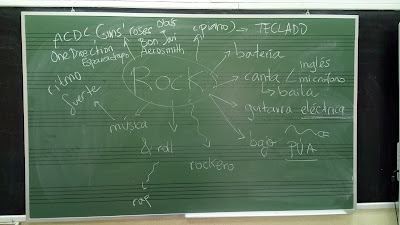 ACDC Guns' roses
One Direction
Bon Jovi
Aerosmith
(piano) → TECLADO
ritmo
fuerte
ROCK
batería
canta
inglés
micrófono
baila
guitarra eléctrica
bajo
PÚA
música
& roll
rockero
rap